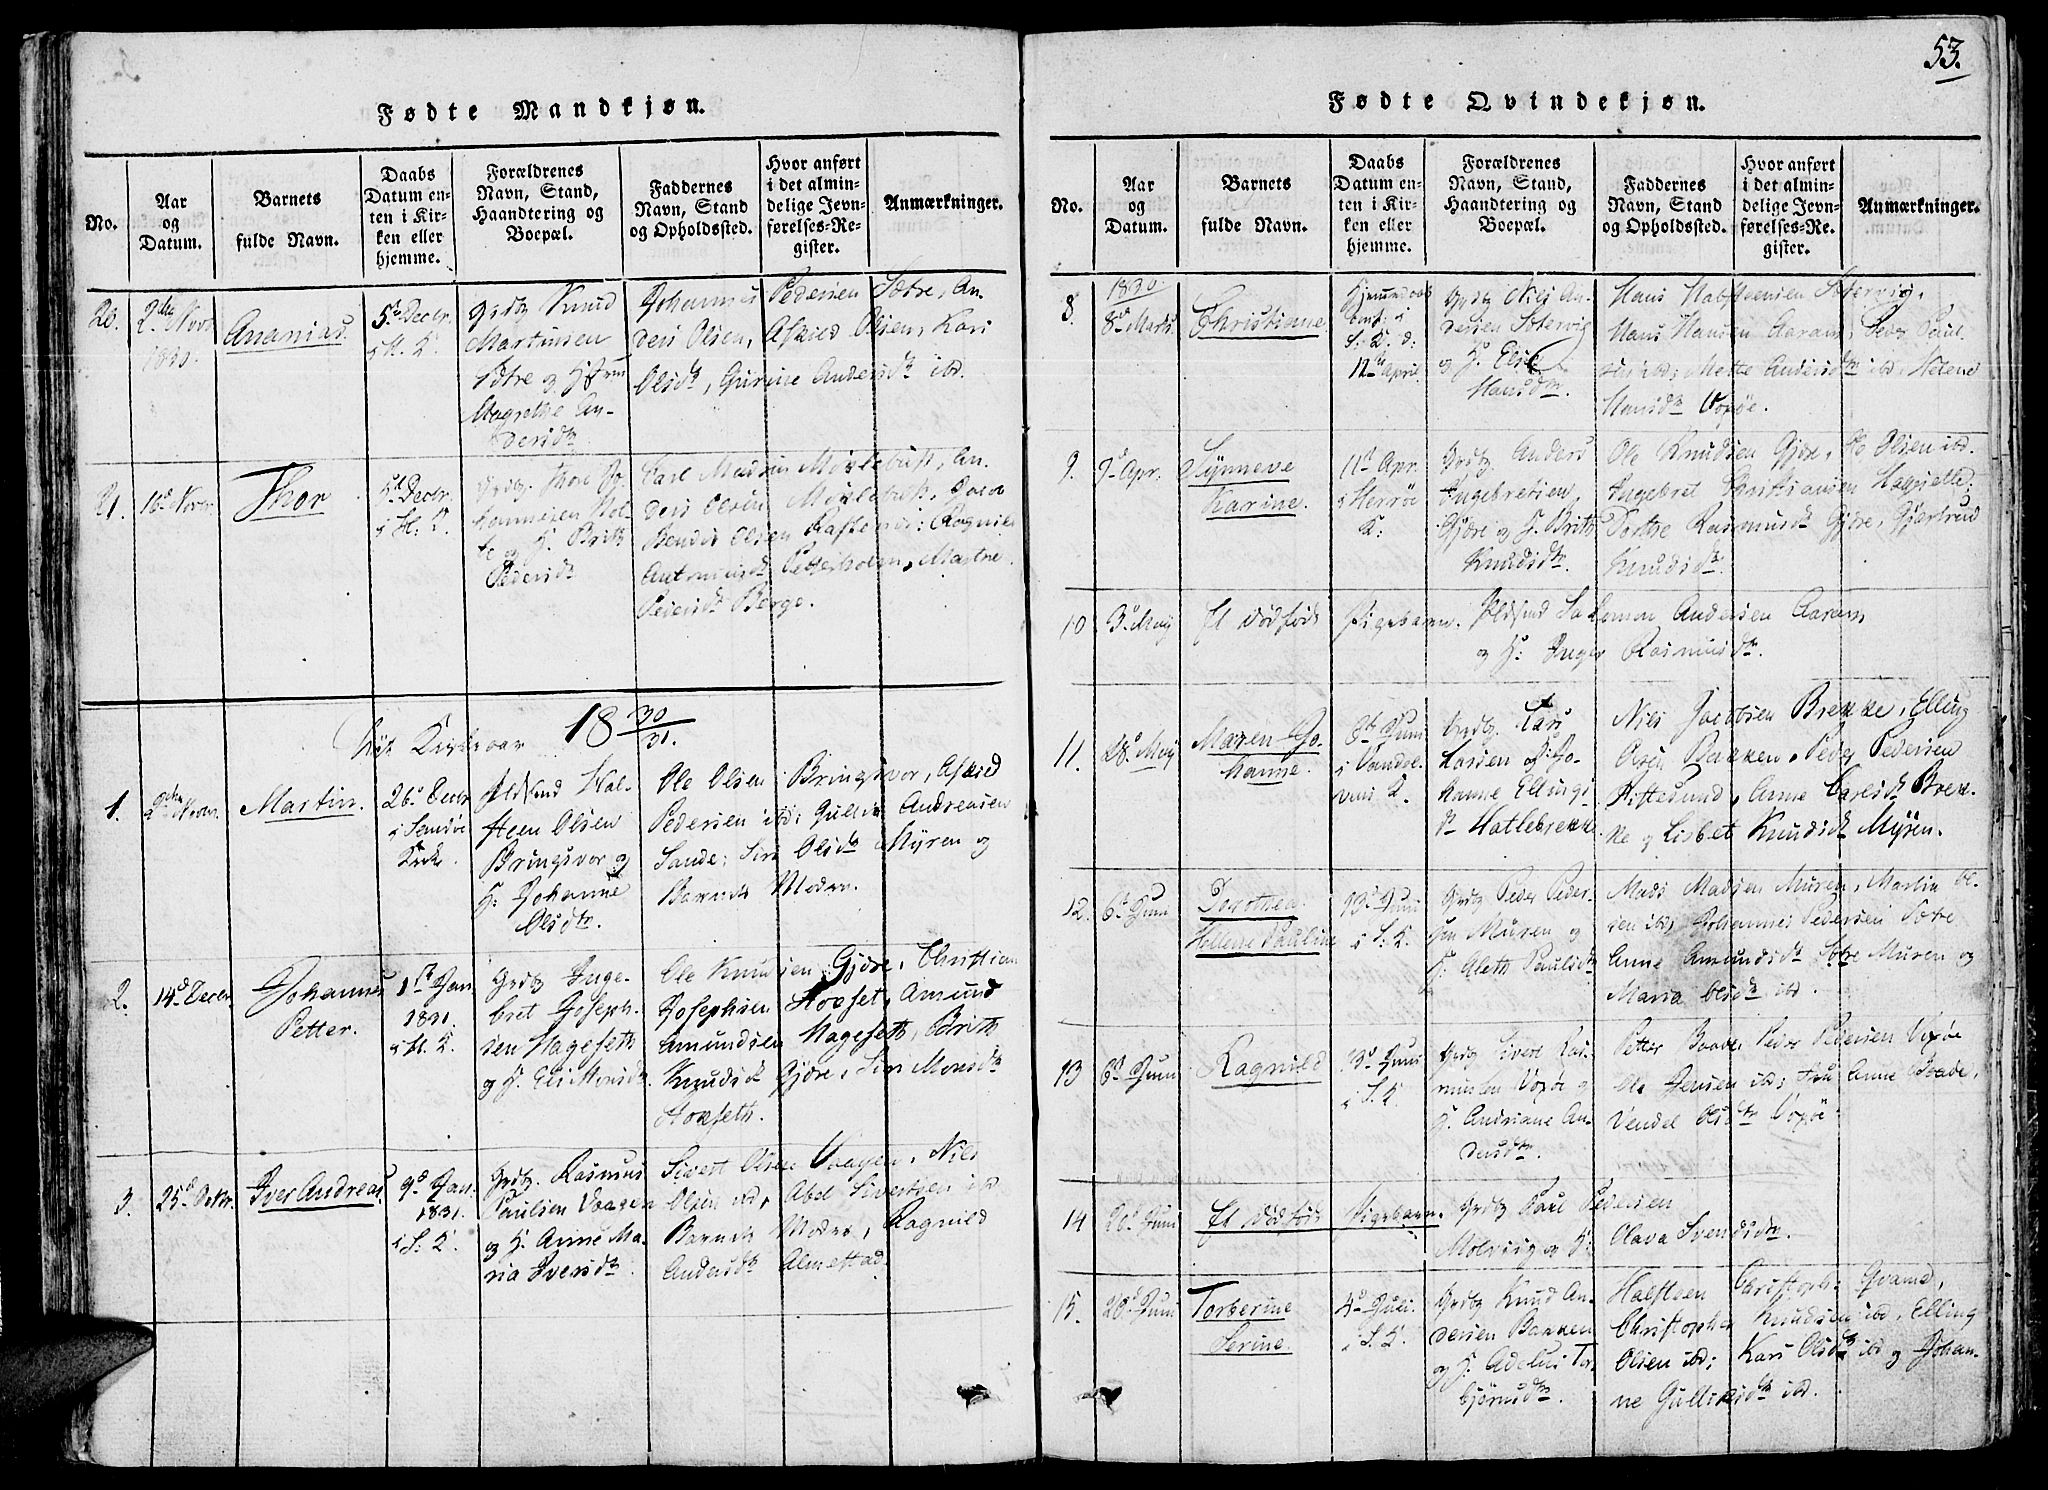 53.
Fødte Mandkjøn.
No.
Aar
og
Datum.
Barnets
fulde Navn.
Daabs
Datum en-
ten i Kir-
ken eller
hjemme.
Forældrenes
Navn, Stand,
Haandtering og
Boepæl.
Faddernes
Navn, Stand
og Opholdssted.
Hvor anført
i det almin-
delige Jevn-
førelses-Re-
gister.
Anmærkninger.
20.
2den Novr
1830.
Ananias.
5te Decbr.
i H. K.
Grdbr Knud
Martinsen
Sætre og H
Magrethe An-
dersdtr
Johannes Pedersen Sætre, An-
ders Olsen, Askild Olsen, Kari
Olsdtr, Gurine Andersdtr ibd.
21.
16d Novbr.
Thor
5d Decbr.
i H: K.
Grdbr. Thore Jo-
hannesen Hol-
te og H. Brith
Pedersdtr
Carl Madsen Myklebust, An-
ders Olsen Myklebust,
Bendix Olsen Ragnild
Antonisdtr Pettersholm, Marthe
Pedersdtr Berge.
Nyt Kirkeaar 18 30/31.
1.
2den Novbr.
Martin.
26d Decbr
i Sandøe
Kirke.
Huusmd Hal-
steen Olsen
Bringsvor og
H: Johanne
Olsdtr.
Ole Olsen Bringsvor, Askild
Pedersen ibd; Gullik Andreasen
Sande; Siri Olsdtr Myren og
Barnets Moder.
2.
14d Decbr.
Johannes
Petter.
1st Jan.
1831.
i H. K.
Grdbr Inge-
bret Joseph-
sen Hageseth
og H. Eli Monsdtr.
Ole Knudsen Gjøre, Christian
Josephsen Hovset, Amund
Amundsen Hageseth, Brith
Knudsdtr Gjøre, Siri Monsdtr
Hovseth.
3.
25d Decbr.
Iver Andreas.
9d Jan.
1831.
i S: K.
Grdbr. Rasmus
Paulsen Vaagen
og H. Anne Ma-
ria Iversdtr.
Sivert Olsen Vaagen, Niels
Olsen ibd, Abel Sivertsen ibd
Barnets Moder, Ragnild
Andersdtr Almestad.
Fødte Qvindekjøn.
No.
Aar
og
Datum.
Barnets
fulde Navn.
Daabs
Datum en-
ten i Kir-
ken eller
hjemme.
Forældrenes
Navn, Stand,
Haandtering og
Boepæl.
Faddernes
Navn, Stand
og Opholdssted.
Hvor anført
i det almin-
delige Jevn-
førelses-Re-
gister.
Anmærkninger.
8.
1830.
8d Marts.
Christiane.
Hjemmedaab
i
S: K. d:
12te April.
Grdbr Niels An-
dersen Søtervig
og H. Elsie
Hansdtr.
Hans Halsteensen Søtervig,
Hans Hansen Aaram, Peder Paul-
sen ibd; Mette Andersdtr ibd, Helene
Hansdtr Voxøe.
9.
9d Apr.
Synneve
Karine.
11d Apr.
i Herrøe
K:
Grdbr. Anders
Ingebretsen
Gjøre og H. Brith
Knudsdtr.
Ole Knudsen Gjøre, Ole Olsen ibd.
Ingebret Christiansen
Dorthe Rasmusdtr Gjøre, Gjærtrud
Knudsdtr.
10
3d May
Et dødfødt Pigebarn. Huusmd Salomon Andersen Aaram,
og H: Inger Rasmusdtr.
11.
28d May
Maren Jo-
hanne.
8de Juni
i Vandel-
vens K.
Grdbr. Lars
Larsen og H: Jo-
hanne Ellings-
dtr Hatlebrekke.
Niels Jacobsen Brekke, Elling
Olsen Bakken, Peder Pedersen
Riftesund, Anne Carlsdtr Brek-
ke og Lisbet Knudsdtr Myren.
12.
6te Juni
Dorothea
Hellene Pauline
13d Juni
i S: K.
Grdbr Peder Peder-
sen Muren og
H. Aleth Paulsdtr
Mads Madsen Muren, Martin Ol-
sen ibd, Johannes Pedersen Sætre
Anne Amundsdtr Sætre Muren og
Maria Olsdtr ibd.
13
6d Juni
Ragnild
13d Juni
i S. K.
Grdbr Sivert Ras-
musen Voxøe og
H. Andriane An-
dersdtr.
Petter Baade, Peder Pedersen Voxøe
Ole Jensen ibd; Fru Anne Baade,
Vendel Olsdtr Voxøe
14
20d Juni
Et dødfødt Pigebarn. Grdbr Paul Pedersen
Molvig og H: Olava Svendsdtr.
15.
20d Juni
Torberine
Serine.
4d Juli
i S. K.
Grdbr Knud An-
dersen Bakken
og H. Adelus Tor-
bjørnsdtr.
Halsteen Christoph: Qvame,
Christopher Knudsen ibd, Elling
Olsen ibd; Kari Olsdtr ibd og Johan-
ne Gulliksdtr ibd.